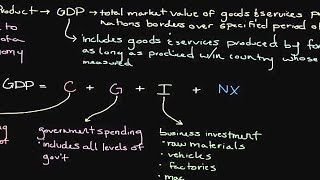 Product → GDP → total market value of goods & services
nations borders over specified period of
to
includes goods & services produced by
as long as produced w/in country whose
measured
GDP = C + G + I + NX
government spending
• includes all levels of
gov't
business investment
• raw materials
• vehicles
• factories